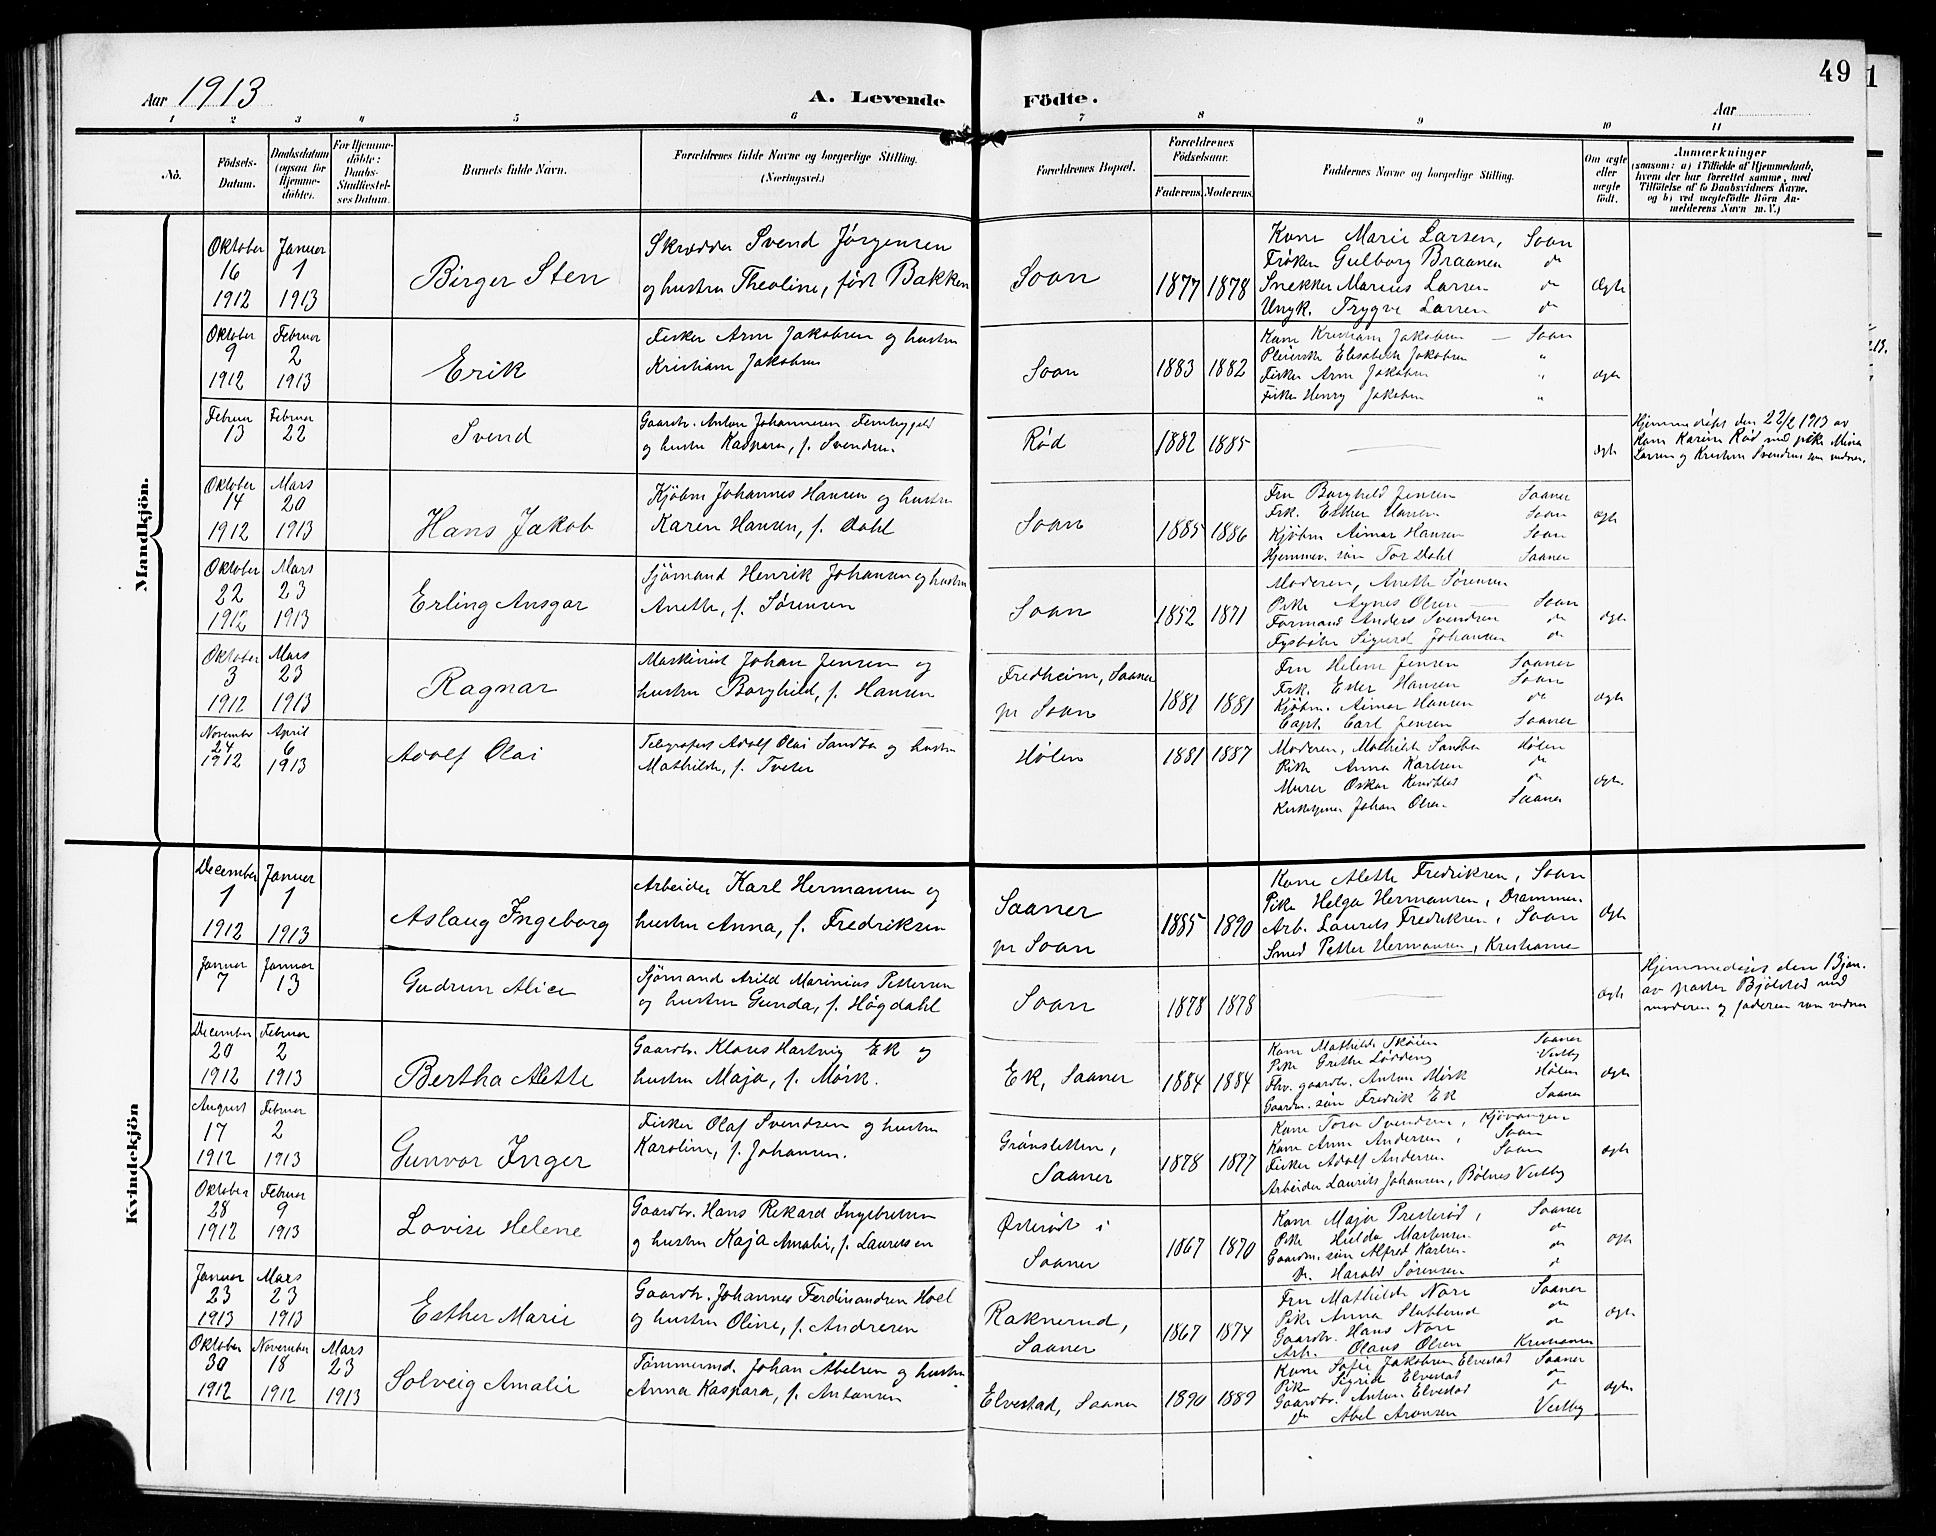 49
Aar 1913
A. Levende Födte.
Aar
1 2 3 4 5 6 7 8 9 10 11
No.
Födsels-Datum.
Daabsdatum (ogsaa for Hjemme-döbte).
For Hjemme-döbte: Daabs-Stadfæstelses Datum.
Barnets fulde Navn.
Forældrenes fulde Navne og borgerlige Stilling. (Næringsvei.)
Forældrenes Bopæl.
Forældrenes Födselsaar.
Faderens. Moderens.
Faddernes Navne og borgerlige Stilling.
Om ægte eller uægte født.
Anmærkninger
(saasom: a) i Tilfælde af Hjemmedaab,
hvem der har forrettet samme, med
Tilföielse af to Daabsvidners Navne,
og b) ved uægtefödte Börn An-
melderens Navn m. V.)
Mandkjön.
Oktober 16 1912
Januar 1 1913
Birger Sten
Skrædder Svend Jørgensen
og hustru Theoline, født Bakken
Soon
1877 1878
Kone Marie Larsen, Soon
Frøken Gulborg Braanen do
Snekker Marius Larsen do
Ungk. Trygve Larsen do
Ægte
Oktober 9 1912
Februar 2 1913
Erik
Fisker Arne Jakobsen og hustru
Kristiane Jakobsen
Soon
1883 1882
Kone Kristiane Jakobsen — Soon
Elisabeth Jakobsen "
Fisker Arne Jakobsen "
Fisker Henry Jakobsen "
ægte
Februar 13
Februar 22
Svend
Gaardbr. Anton Johannesen
og hustru Kaspara, f. Svendsen
Rød
1882 1885
ægte
Hjemmedøpt den 22/2 1913 av
Kone Karin Rød med pike Mina
Larsen og Kristine Svendsen som vidner.
Oktober 14 1912
Mars 20 1913
Hans Jakob
Kjøbm Johannes Hansen og hustru
Karen Hansen, f. Dahl
Soon
1885 1886
Fru Borghild Jensen Saaner
Frk. Esther Hansen Soon
Kjøbm Aimar Hansen Soon
Tor Dahl Saaner
ægte
Oktober 22 1912
Mars 23 1913
Erling Ansgar
Sjømand Henrik Johansen og hustru
Anethe, f. Sørensen
Soon
1852 1871
Moderen, Anethe Sørensen
Pike Agnes Olsen — Soon
Formand Anders Svendsen do
Sigurd Johansen do
ægte
Oktober 3 1912
Mars 23 1913
Ragnar
Maskinist Johan Jensen og
hustru Borghild, f. Hansen
Fredheim, Saaner
pr Soon
1881 1881
Fru Helene Jensen Saaner
Frk. Ester Hansen Soon
Kjøbm. Aimar Hansen do
Capt. Carl Jensen Saaner
ægte
November 24 1912
April 6 1913
Adolf Olai
Adolf Olai Sandbo og hustru
Mathilde, f. Tveter
Hølen
1881 1887
Moderen, Mathilde Sandbo Hølen
Pike Anna Karlsen do
Murer Oskar do
Johan Olsen Saaner
ægte.
Kvindekjön
December 1 1912
Januar 1 1913
Aslaug Ingeborg
Arbeider Karl Hermansen og
hustru Anna, f. Fredriksen
Saaner
pr Soon
1885 1890
Kone Alette Fredriksen, Soon
Pike Helga Hermansen, Drammen
Arb. Laurits Fredriksen, Soon
Smed Petter Hermansen, Kristiania
Ægte
Januar 7
Januar 13
Gudrun Alice
Sjømand Arild Marinius Pettersen
og hustru Gunda, f. Høgdahl
Soon
1878 1878
ægte
Hjemmedøpt den 13 jan.
av pastor Bjølstad med
moderen og faderen som vidner
December 20 1912
Februar 2 1913
Bertha Alette
Gaardbr. Klaus Hartvig Ek og
hustru Maja, f. Mørk.
Ek, Saaner
1884 1884
Kone Mathilde Skøien Saaner
Pike Grethe Vestby
Fhv. gaardbr. Anton Mørk Hølen
Gaardm. søn Fredrik Ek Saaner
ægte
August 17 1912
Februar 2 1913
Gunvor Inger
Fisker Olaf Svendsen og hustru
Karoline, f. Johansen.
Grønsletten,
Saaner
1878 1877
Kone Tora Svendsen, Kjøvangen
Kone Anna Andersen, Soon
Fisker Adolf Andersen Soon
Arbeider Laurits Johansen, Bølnes Vestby
ægte
Oktober 28 1912
Februar 9 1913
Lovise Helene
Gaardbr. Hans Rikard Ingebretsen
og hustru Kaja Amalie, f. Lauretsen
Østerød i
Saaner
1867 1870
Kone Maja Presterød, Saaner
Pike Hulda Martinsen do
Gaardm. søn Alfred Karlsen do
Do. Harald Sørensen do
ægte
Januar 23 1913
Mars 23 1913
Esther Marie
Gaardbr. Johannes Ferdinandsen Hoel
og hustru Oline, f. Andresen
Raknerud,
Saaner
1867 1874
Fru Mathilde Nore Saaner
Pike Anna Stubberud do
Gaardbr. Hans Nore do
Arb. Olaus Olsen Kristiania
ægte
Oktober 30 1912
November 18 1912
Mars 23 1913
Solveig Amalie
Tømmermd. Johan Abelsen og hustru
Anna Kaspara, f. Antonsen
Elvestad, Saaner
1890 1889
Kone Sofie Jakobsen Elvestad Saaner
Pike Sigrid Elvestad do
Gaardbr. Anton Elvestad do
Do Abel Aronsen Vestby
ægte.